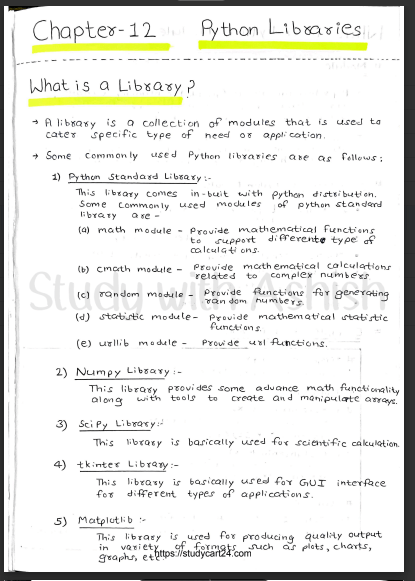 Chapter-12 Python Libraries
What is a Library?
→ A library is a collection of modules that is used to
cater specific type of need or application.
→ Some commonly used Python libraries are as follows:
1) Python Standard Library:-
This library comes in-built with python distribution.
Some commonly used modules of python standard
library are -
(a) math module - provide mathematical functions
to support different type of
calculations.
(b) cmath module - Provide mathematical calculations
related to complex numbers
(c) random module - Provide functions for generating
random numbers.
(d) statistic module - Provide mathematical statistic
functions.
(e) urllib module - Provide url functions.
2) Numpy Library:-
This library provides some advance math functionality
along with tools to create and manipulate arrays.
3) SciPy Library:-
This library is basically used for scientific calculation.
4) tkinter Library:-
This library is basically used for GUI interface
for different types of applications.
5) Matplotlib :-
This library is used for producing quality output
in variety of formats such as plots, charts,
graphs, etc.
https://studycart24.com